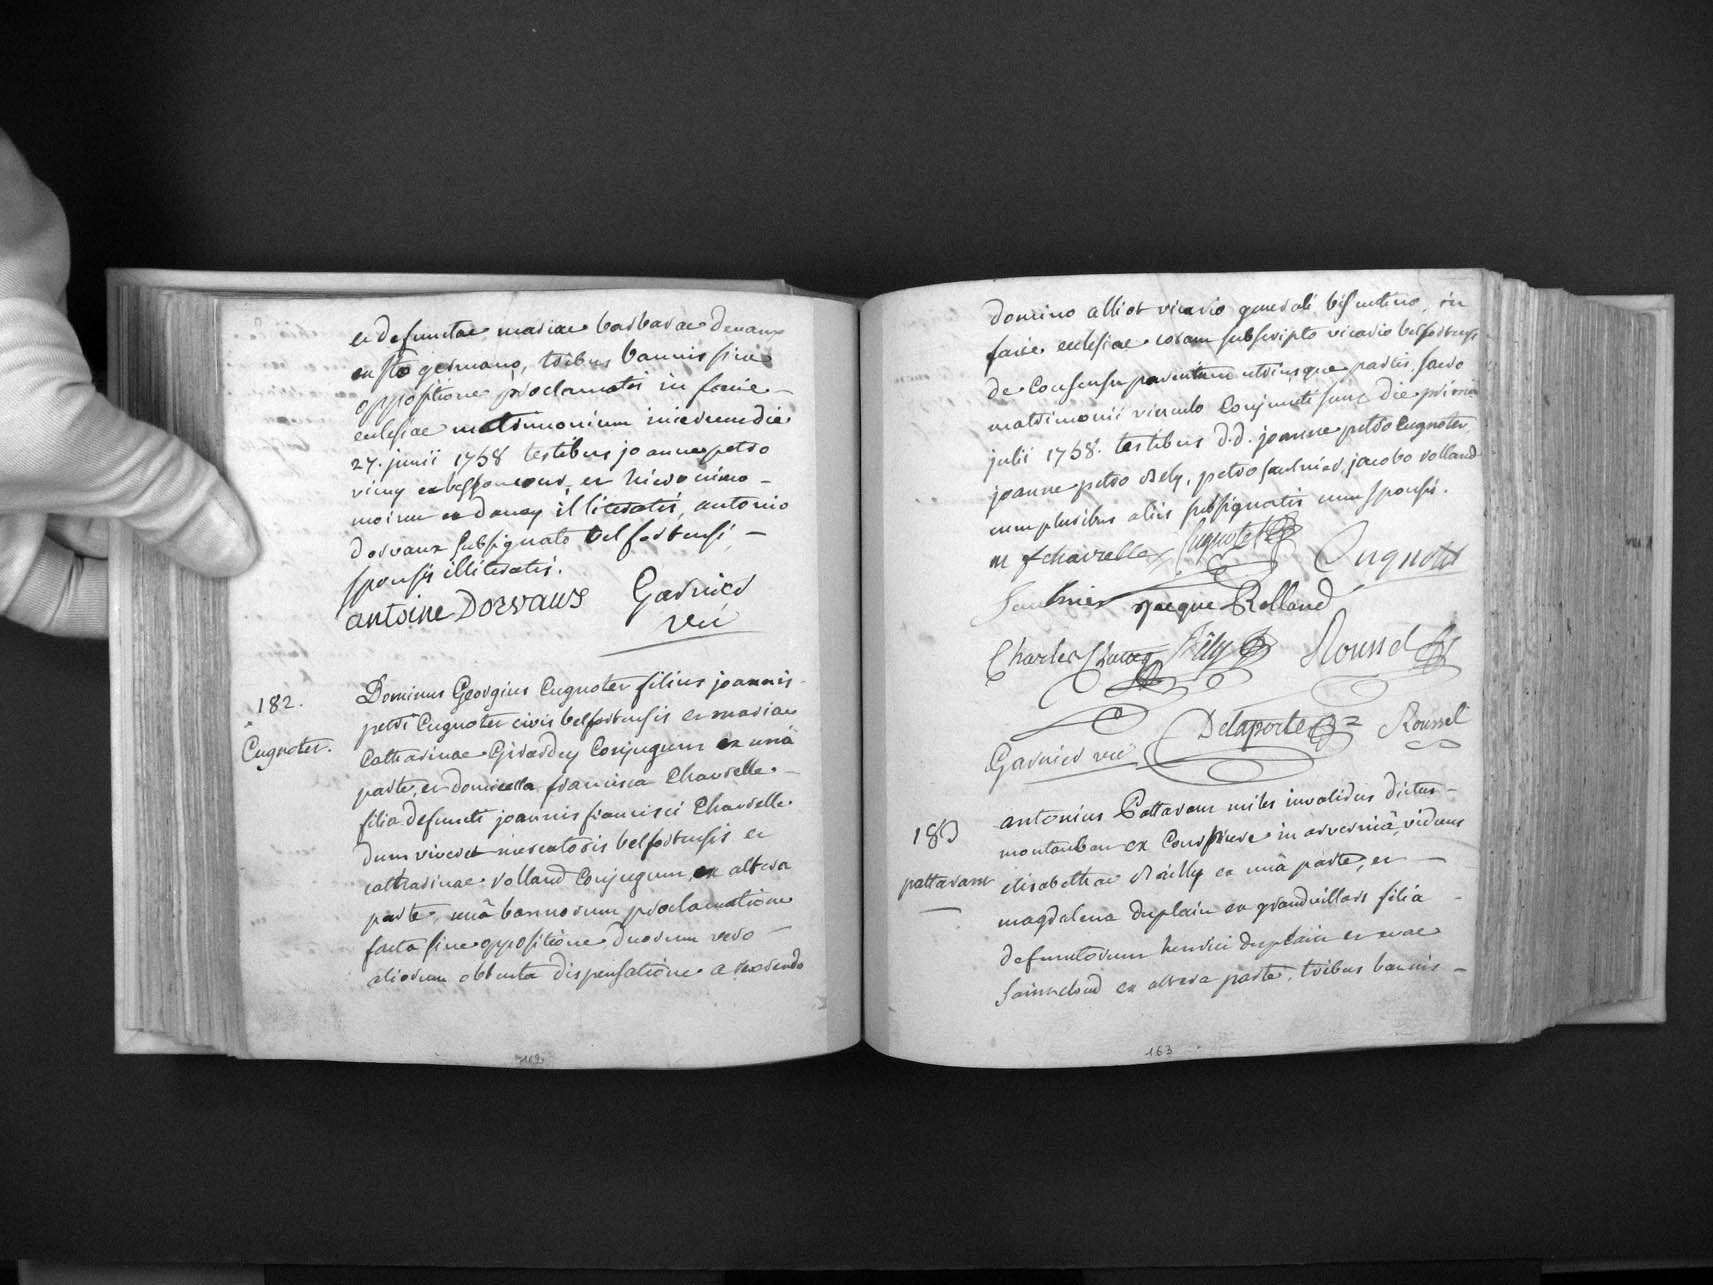 et defunctae mariae barbarae devaux
ex sto germano, tribus bannis sine
oppositione proclamatis in facie
ecclesiae matrimonium inierunt die
27. junii 1758 testibus joanne petro
viney ex bessoncourt, et hieronimo
moinne ex danez illiteratis, antonio
dorvaux subsignato belfortensi,
sponsis illiteratis.
antoine Dorvaux Garnier
vic
182.
Cugnotet.
Dominus Georgius Cugnotet filius joannis
petri Cugnotet civis belfortensis et mariae
Catharinae Girardey Conjugum ex unâ
parte, et domicella francisca Chavrelle
filia defuncti joannis francisci Chavrelle
dum viveret mercatoris belfortensis et
catharinae rolland Conjugum, ex altera
parte, unâ bannorum proclamatione
facta sine oppositione duorum vero
aliorum obtenta dispensatione a reverendo
162
domino alliot vicario generali bisuntino, in
facie ecclesiae coram subscripto vicario belfortensi
de Consensu parentum utriusque partis, sacro
matrimonii vinculo Conjuncti sunt die prima
julii 1758. testibus d.d. joanne petro Cugnotet,
joanne petro Bely, petro saulnier, jacobo rolland
cum pluribus aliis subsignatis cum sponsis.
m f chavrelle Cugnotet Cugnotet
Saulnier Jacque Rolland
Charles Bély Roussel
Delaporte Roussel
Garnier vic
183
pattaram
antonius Pattaram miles invalidus dictus
montauban ex Courpiere in arverniâ, viduus
elisabethae Bailly ex unâ parte, et
magdalena duplain ex grandvillars filia
defunctorum henrici duplain et evae
sainctcloud ex altera parte, tribus bannis
163